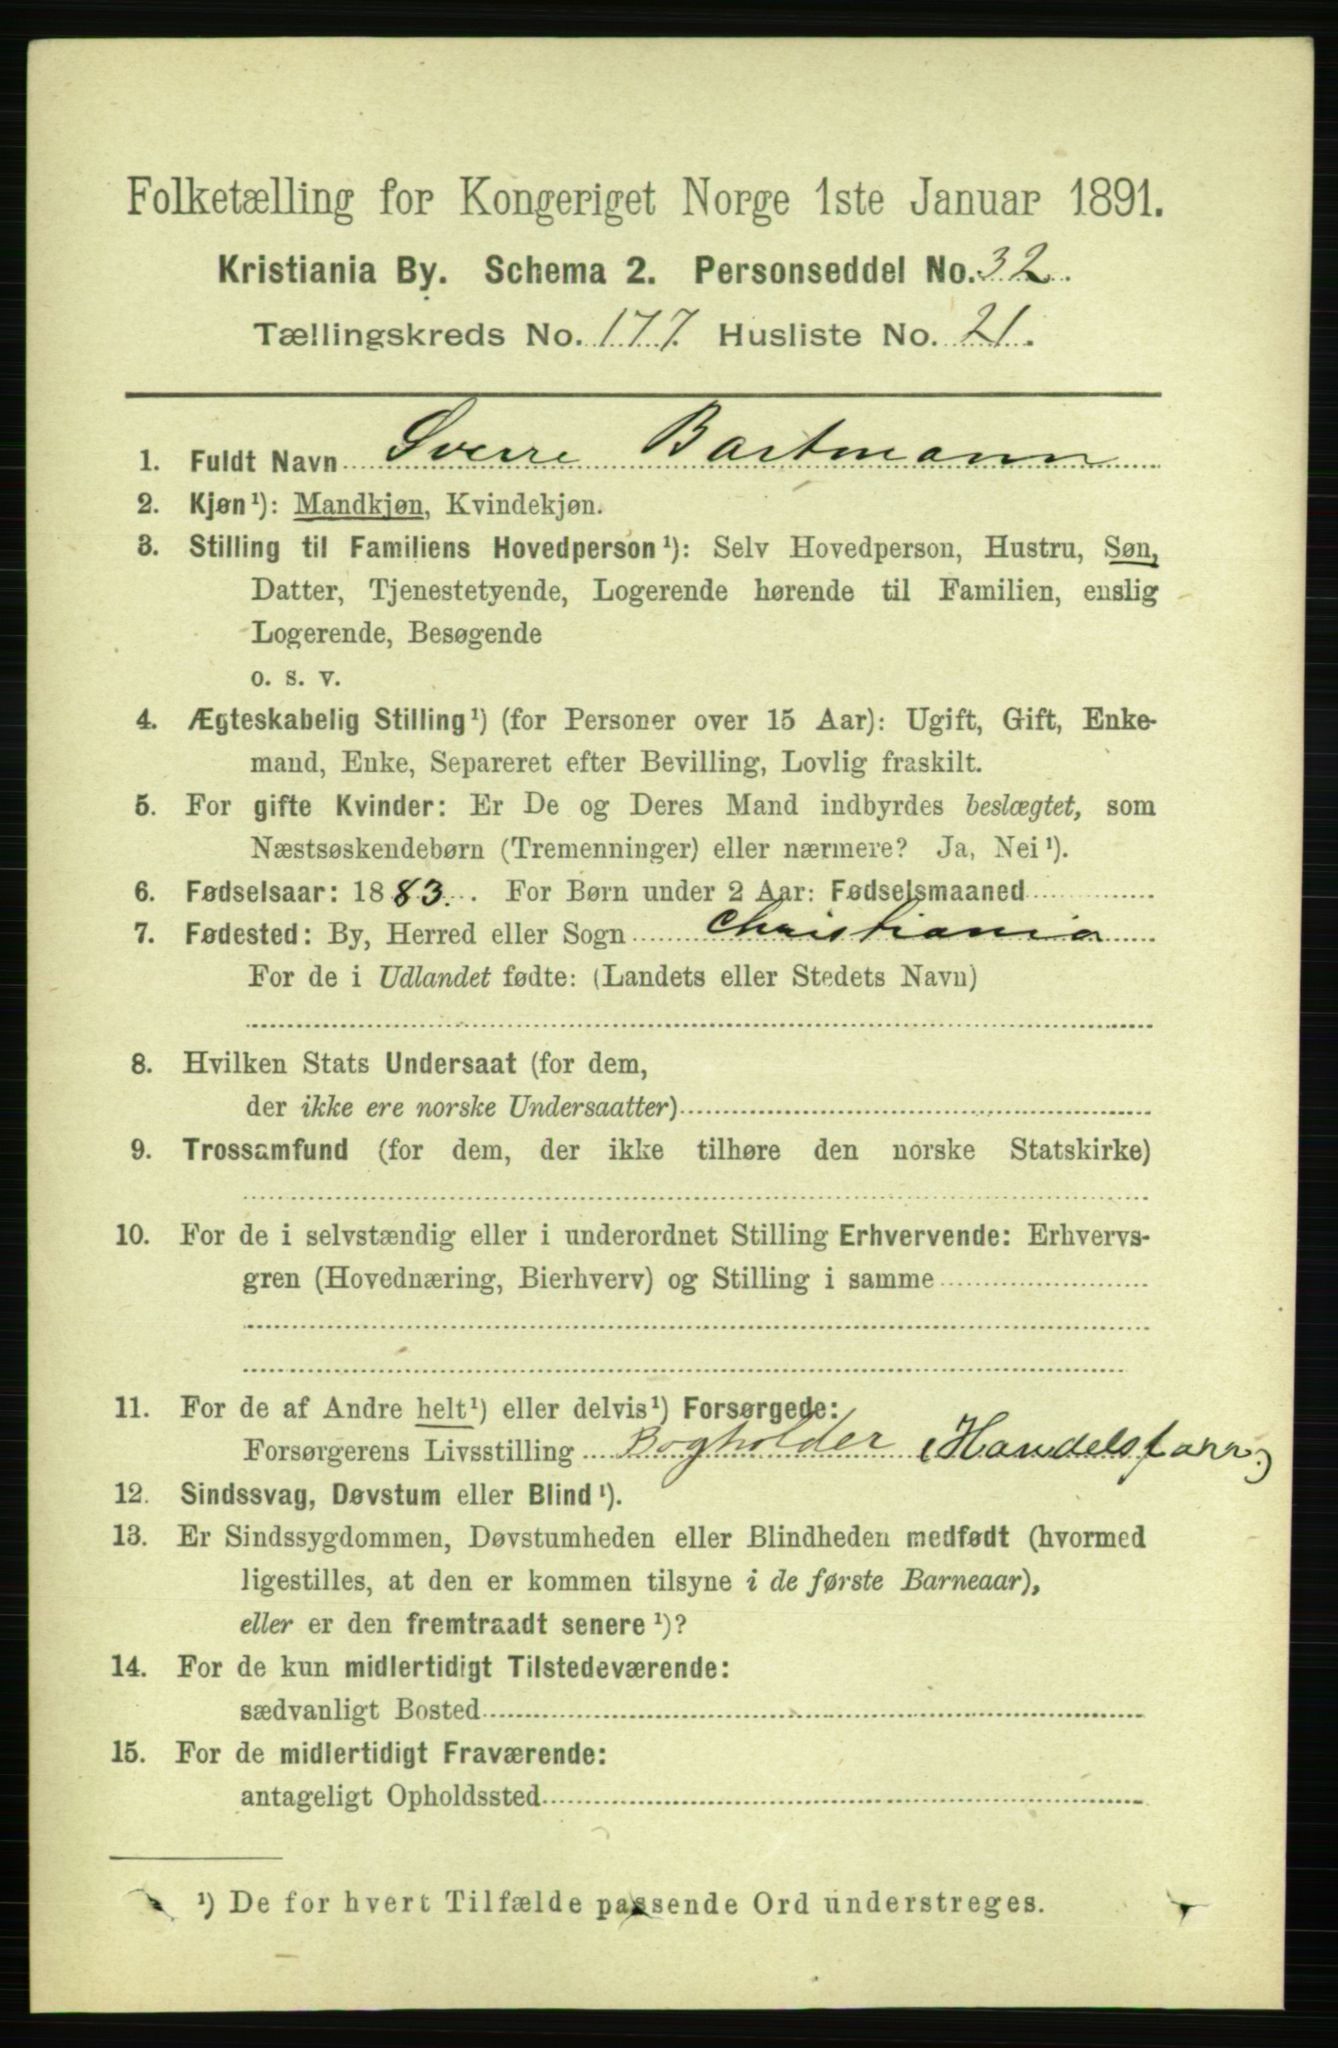 Folketælling for Kongeriget Norge 1ste Januar 1891.
Kristiania By. Schema 2. Personseddel No. 32.
Tællingskreds No. 177. Husliste No. 21.
1. Fuldt Navn Sverre Bartmann
2. Kjøn¹): Mandkjøn, Kvindekjøn.
3. Stilling til Familiens Hovedperson¹): Selv Hovedperson, Hustru, Søn,
Datter, Tjenestetyende, Logerende hørende til Familien, enslig
Logerende, Besøgende
o. s. v.
4. Ægteskabelig Stilling¹) (for Personer over 15 Aar): Ugift, Gift, Enke-
mand, Enke, Separeret efter Bevilling, Lovlig fraskilt.
5. For gifte Kvinder: Er De og Deres Mand indbyrdes beslægtet, som
Næstsøskendebørn (Tremenninger) eller nærmere? Ja, Nei¹).
6. Fødselsaar: 1883. For Børn under 2 Aar: Fødselsmaaned
7. Fødested: By, Herred eller Sogn Christiania
For de i Udlandet fødte: (Landets eller Stedets Navn)
8. Hvilken Stats Undersaat (for dem,
der ikke ere norske Undersaatter)
9. Trossamfund (for dem, der ikke tilhøre den norske Statskirke)
10. For de i selvstændig eller i underordnet Stilling Erhvervende: Erhvervs-
gren (Hovednæring, Bierhverv) og Stilling i samme
11. For de af Andre helt¹) eller delvis¹) Forsørgede:
Forsørgerens Livsstilling Bogholder (Handelsforr.)
12. Sindssvag, Døvstum eller Blind¹).
13. Er Sindssygdommen, Døvstumheden eller Blindheden medfødt (hvormed
ligestilles, at den er kommen tilsyne i de første Barneaar),
eller er den fremtraadt senere¹)?
14. For de kun midlertidigt Tilstedeværende:
sædvanligt Bosted
15. For de midlertidigt Fraværende:
antageligt Opholdssted
¹) De for hvert Tilfælde passende Ord understreges.